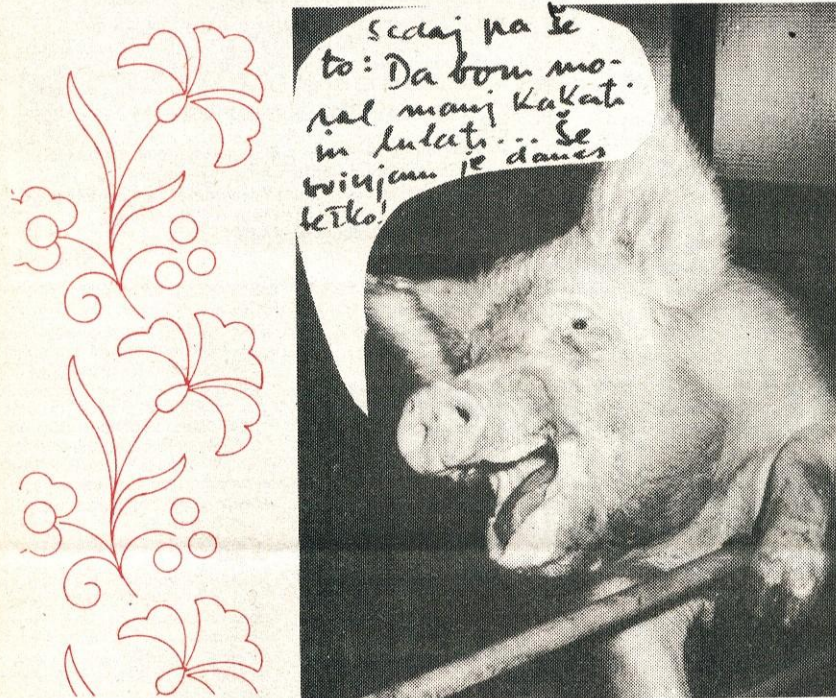 sedaj pa še
to: Da bom mo-
ral manj kakati
in lulati... Še
svinjam je danes
težko!